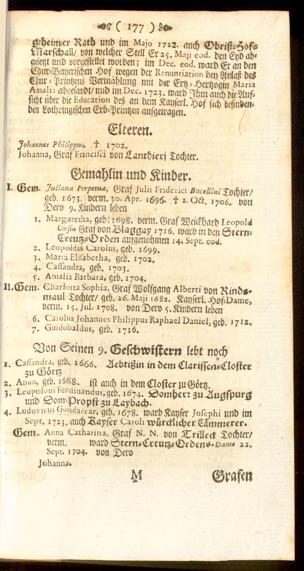 ( 177 )
geheimer Rath und im Majo 1722. auch Obrist-Hof-
Marschall, von welcher Stell Er 25. Maji eod. den Eyd abge-
legt und vorgestellet worden; im Dec. eod. ward Er an den
Chur-Bayerischen Hof wegen der Renuntiation bey Anlaß des
Chur-Printzens Vermählung mit der Ertz-Hertzogin Maria
Amalia abgesandt/ und im Dec. 1723. ward Ihm auch die Auf-
sicht über die Education des an dem Kayserl. Hof sich befinden-
den Lothringischen Erb-Printzen aufgetragen.
Elteren.
Johannes Philippus, † 1702.
Johanna, Graf Francisci von Lanthieri Tochter.
Gemahlin und Kinder.
I. Gem. Juliana Perpetua, Graf Julii Friderici Bucellini Tochter/
geb. 1673. verm. 30. Apr. 1696. † 2. Oct. 1706. von
Dero 9. Kindern leben
1. Margaretha, geb. 1698. verm. Graf Weickhard Leopold
Ursin Graf von Blaggay 1716. ward in den Stern-
Creutz-Orden aufgenohmen 14. Sept. eod.
2. Leopoldus Carolus, geb. 1699.
3. Maria Elisabetha, geb. 1702.
4. Cassandra, geb. 1703.
5. Amalia Barbara, geb. 1704.
II. Gem. Charlotta Sophia, Graf Wolfgang Alberti von Rinds-
maul Tochter/ geb. 26. Maji 1682. Kayserl. Hof-Dame,
verm. 15. Jul. 1708. von Dero 5. Kindern leben
6. Carolus Johannes Philippus Raphael Daniel, geb. 1712.
7. Guidobaldus, geb. 1716.
Von Seinen 9. Geschwistern lebt noch
1. Cassandra, geb. 1666. Aebtißin in dem Clarissen-Closter
zu Görtz
2. Anna, geb. 1668. ist auch in dem Closter zu Görtz.
3. Leopoldus Ferdinandus, geb. 1674. Domherr zu Augspurg
und Dom-Propst zu Laybach.
4. Ludovicus Gundaccar, geb. 1678. ward Kayser Josephi und im
Sept. 1723. auch Kayser Caroli würcklicher Cämmerer.
Gem. Anna Catharina, Graf N. N. von Trilleck Tochter/
verm. ward Stern-Creutz-Ordens-Dame 22.
Sept. 1704. von Dero
Johanna.
M Grafen